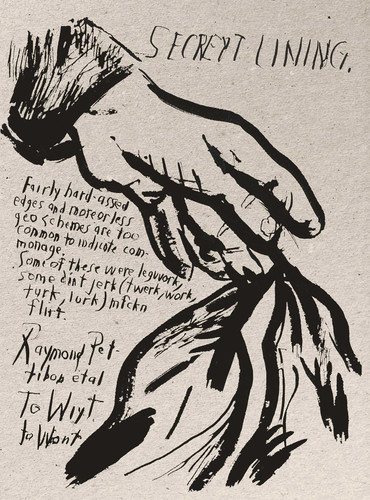 SECREYT LINING.
Fairly hard-assed
edges and more or less
geo schemes are too
common to indicate com-
monage.
Some of these were legwork,
some ain't jerk (twerk, work,
turk, lurk) mfckn
flirt.
Raymond Pet-
tibon et al
To Wiyt.
to Wont